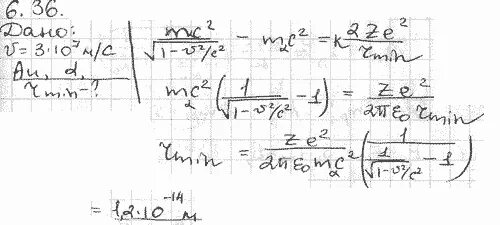 6.36.
Дано:
v = 3·10⁷ м/с
Au, α,
r min - ?
mc²/√(1-v²/c²) - mαc² = k 2Ze²/r min
mαc² (1/√(1-v²/c²) - 1) = Ze²/(2πε₀ r min)
r min = Ze²/(2πε₀mαc²) (1/(1/√(1-v²/c²) - 1))
= 1,2·10⁻¹⁴ м